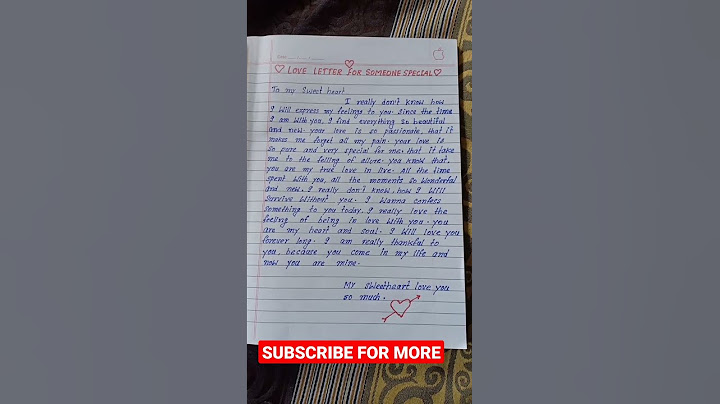 LOVE LETTER FOR SOMEONE SPECIAL
To my Sweet heart
I really don't know how
I will express my feelings to you. Since the time
I am with you, I find everything so beautiful
and new. your love is so passionate, that it
makes me forget all my pain. your love is
so pure and very special for me, that it take
me to the felling of allure. you know that,
you are my true love in live. All the time
spent with you, all the moments so wonderful
and new. I really don't know, how I will
survive without you. I wanna confess
something to you today. I really love the
feeling of being in love with you. you
are my heart and soul. I will love you
forever long. I am really thankful to
you, because you come in my life and
now you are mine.
My sweetheart love you
so much.
SUBSCRIBE FOR MORE